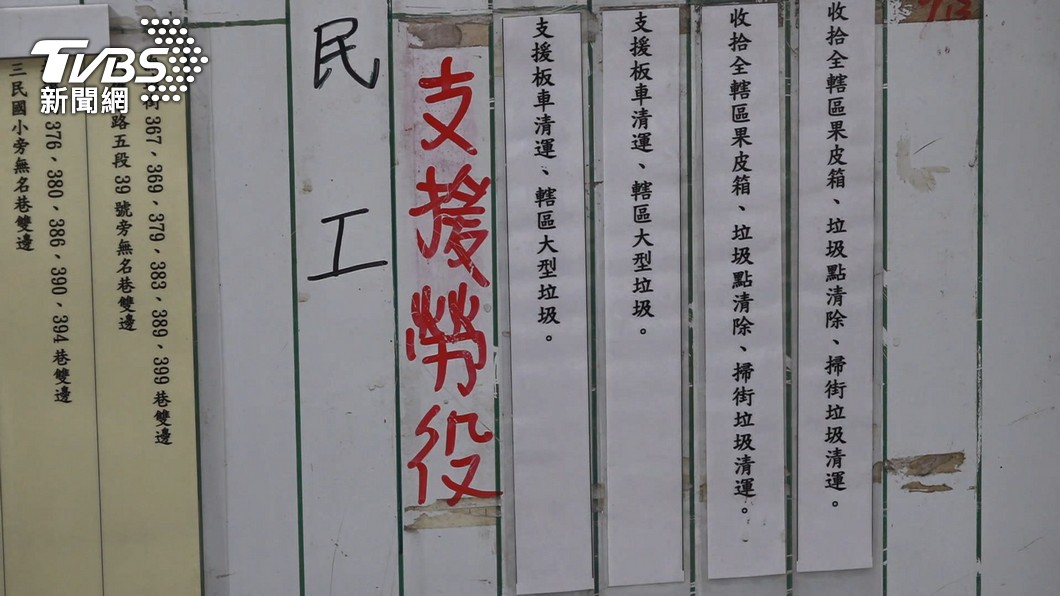 TVBS
新聞網
收拾全轄區果皮箱、垃圾點清除、掃街垃圾清運。
收拾全轄區果皮箱、垃圾點清除、掃街垃圾清運。
支援板車清運、轄區大型垃圾。
支援板車清運、轄區大型垃圾。
支援勞役
民工
367、369、379、383、389、399巷雙邊
路五段39號旁無名巷雙邊
376、380、386、390、394巷雙邊
三民國小旁無名巷雙邊